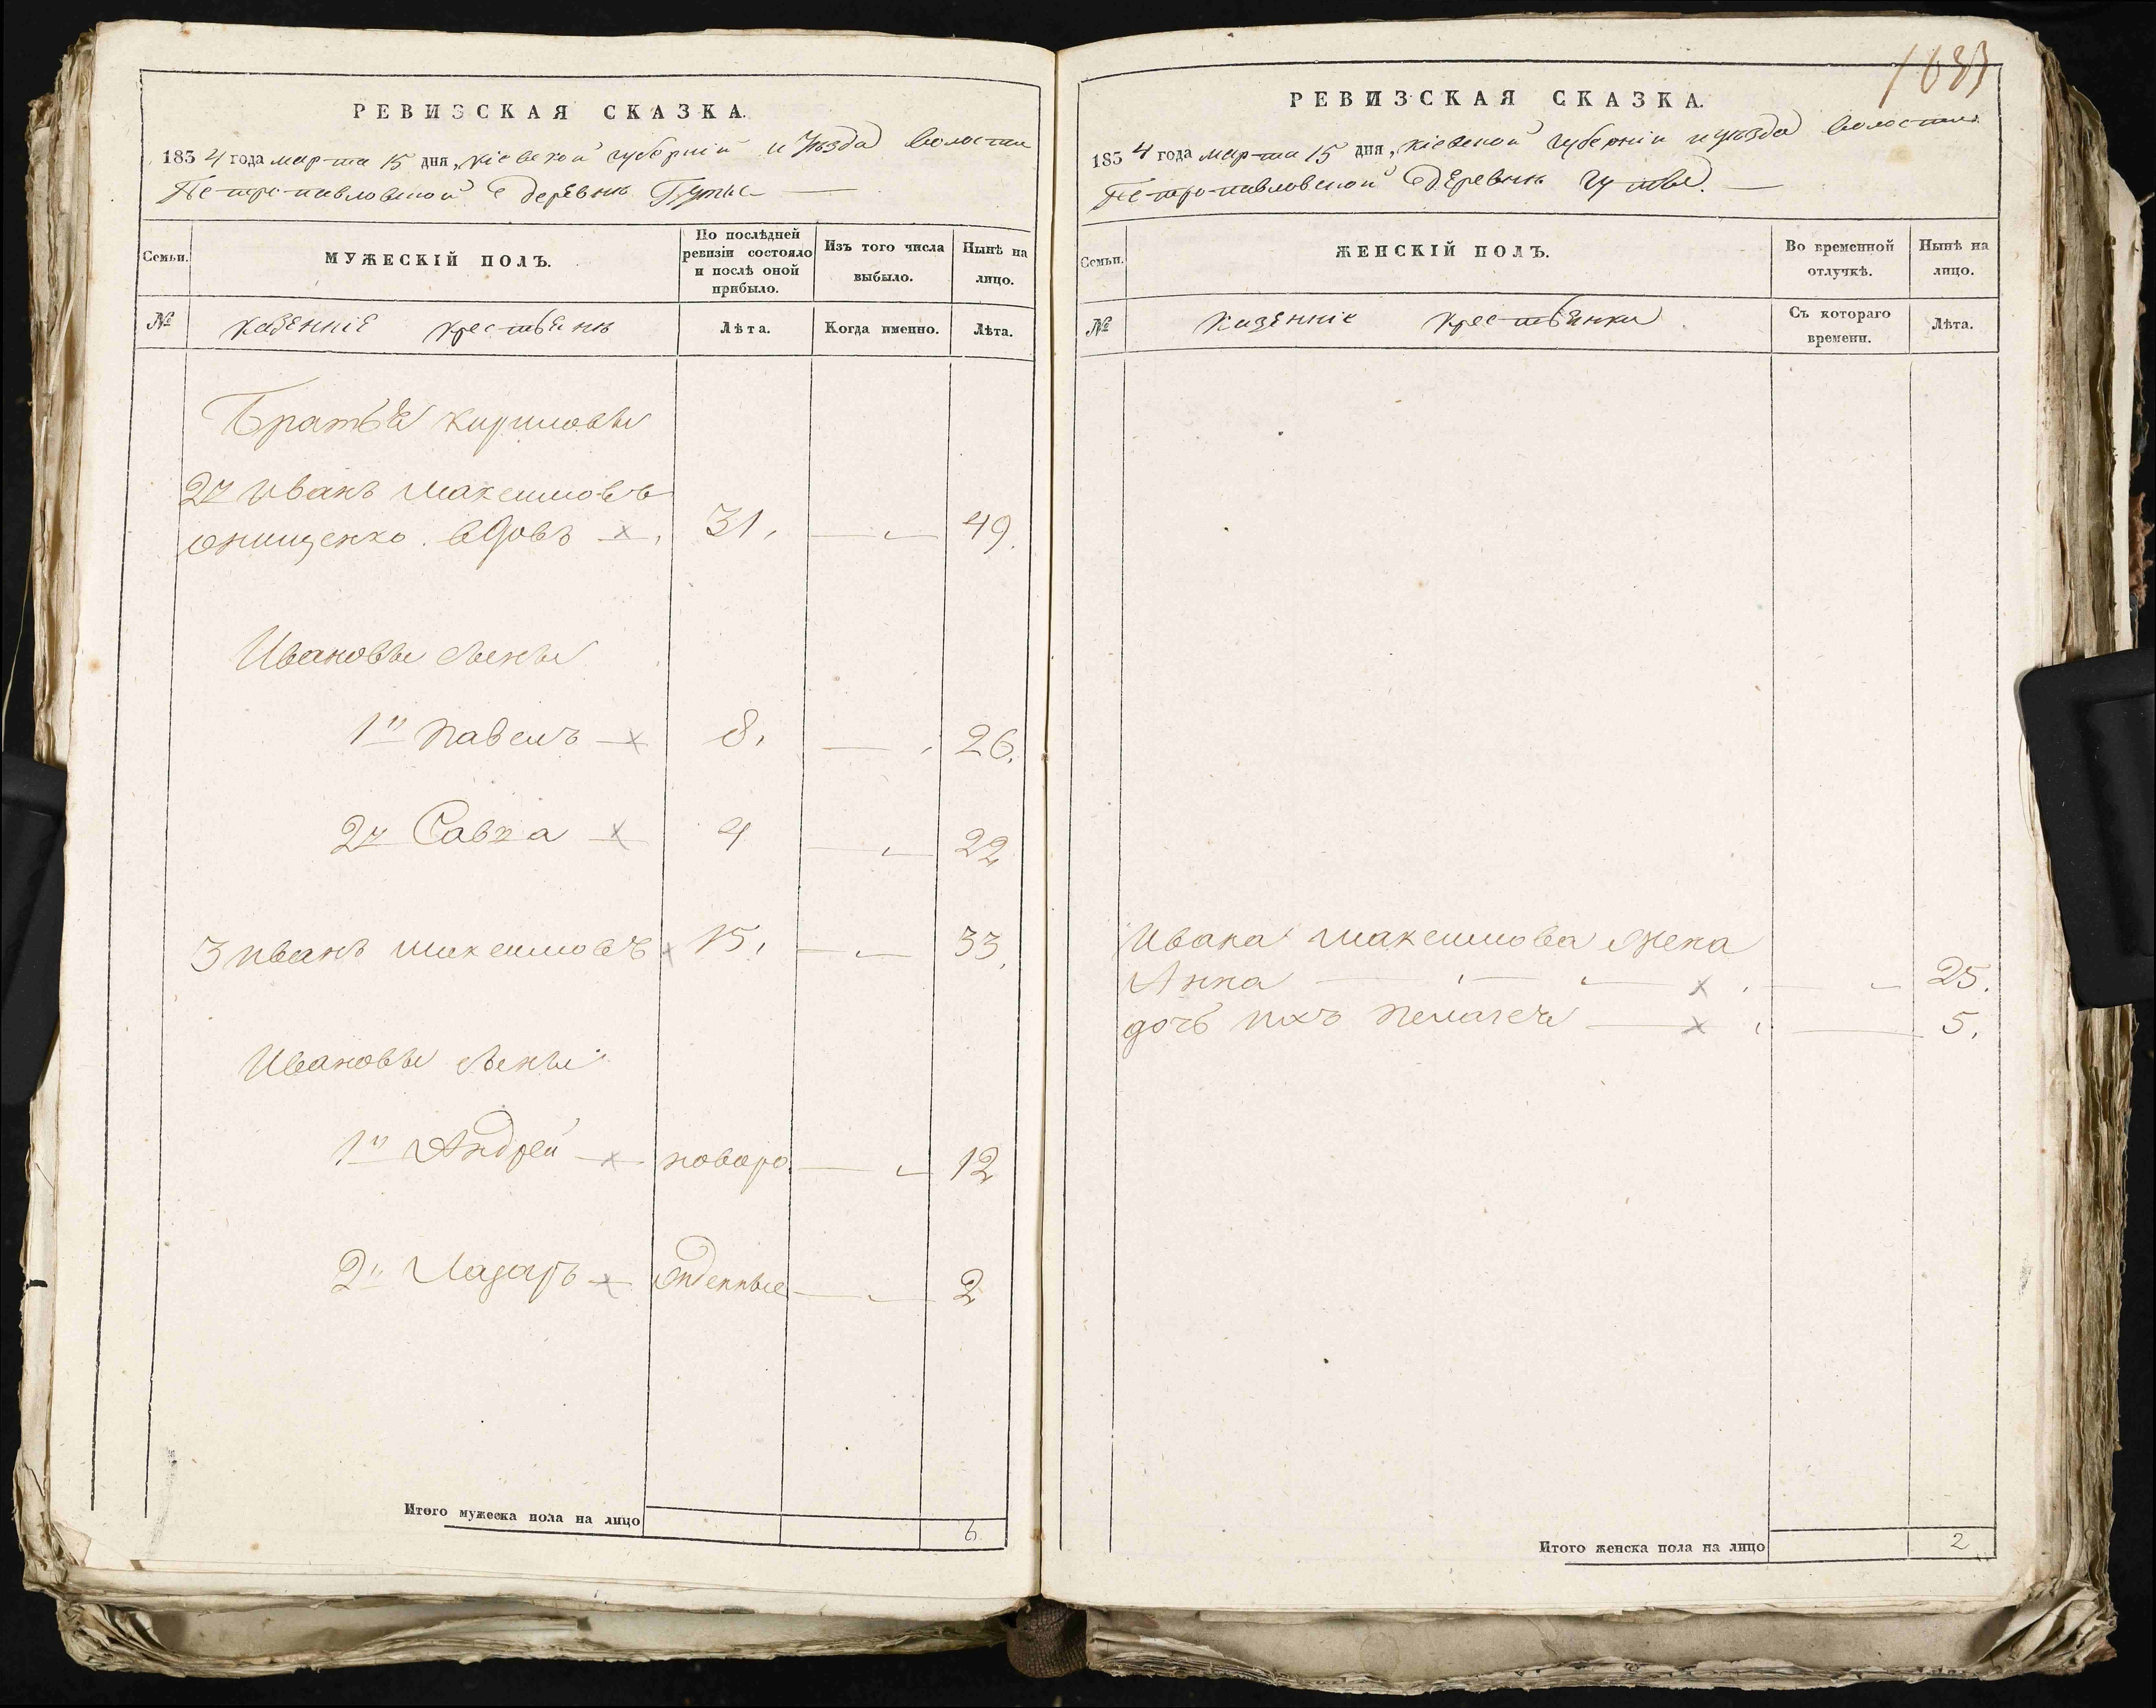 РЕВИЗСКАЯ СКАЗКА.
1834 года марта 15 дня, Кіевской губерніи и уѣзда волости
Петропавловской деревнѣ Гутѣ
Семьи.
МУЖЕСКІЙ ПОЛЪ.
По послѣдней ревизіи состояло и послѣ оной прибыло.
Изъ того числа выбыло.
Нынѣ на лицо.
№
Казенніе крестьянѣ
Лѣта.
Когда именно.
Лѣта.
Братья Кириловы
2й Иванъ Максимовъ
Онищенко вдовъ х 31, 49.
Ивановы сыны
1й Павелъ х 8, 26.
2й Савка х 4 22
3 Иванъ Максимовъ х 15, 33,
Ивановы сыны
1й Андрей х новоро 12
2й Лазарь х жденные 2
Итого мужеска пола на лицо 6
1633
РЕВИЗСКАЯ СКАЗКА.
1834 года марта 15 дня, Кіевской губерніи и уѣзда волости
Петропавловской деревнѣ Гутѣ.
Семьи.
ЖЕНСКІЙ ПОЛЪ.
Во временной отлучкѣ.
Нынѣ на лицо.
№
Казенніе крестьянки
Съ котораго времени.
Лѣта.
Ивана Максимова жена
Анна х 25.
дочь ихъ Пелагея х 5.
Итого женска пола на лицо 2